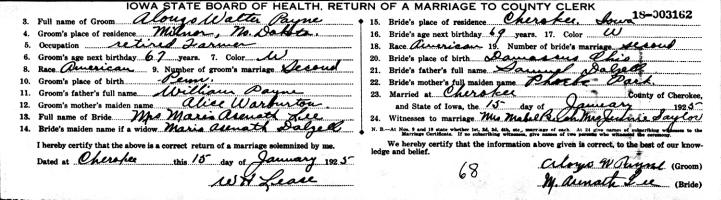 IOWA STATE BOARD OF HEALTH. RETURN OF A MARRIAGE TO COUNTY CLERK
18-003162
3. Full name of Groom Alonzo Walter Payne
4. Groom's place of residence Milnor, No. Dakota.
5. Occupation retired Farmer
6. Groom's age next birthday 67 years. 7. Color W
8. Race American 9. Number of groom's marriage Second
10. Groom's place of birth Penn.
11. Groom's father's full name William Payne
12. Groom's mother's maiden name Alise Warburton
13. Full name of Bride Mrs Maria Asenath Lee
14. Bride's maiden name if a widow Maria Asenath Dalzell
I hereby certify that the above is a correct return of a marriage solemnized by me.
Dated at Cherokee this 15 day of January 1925
W H Lease
15. Bride's place of residence Cherokee, Iowa
16. Bride's age next birthday 69 years. 17. Color W
18. Race American 19. Number of bride's marriage second
20. Bride's place of birth Damascus Ohio
21. Bride's father's full name Dalzell
22. Bride's mother's full maiden name Phoebe Park
23. Married at Cherokee County of Cherokee,
and State of Iowa, the 15 day of January 1925
24. Witnesses to marriage Mrs Mabel Mrs Jennie Taylor
N. B.—At Nos. 9 and 19 state whether 1st, 2d, 3d, 4th, etc., marriage of each. At 24 give names of subscribing witnesses to the Marriage Certificate. If no subscribing witnesses, give names of two persons who witnessed the ceremony.
We hereby certify that the information above given is correct, to the best of our knowledge and belief.
68
Alonzo W Payne (Groom)
M. Asenath Lee (Bride)